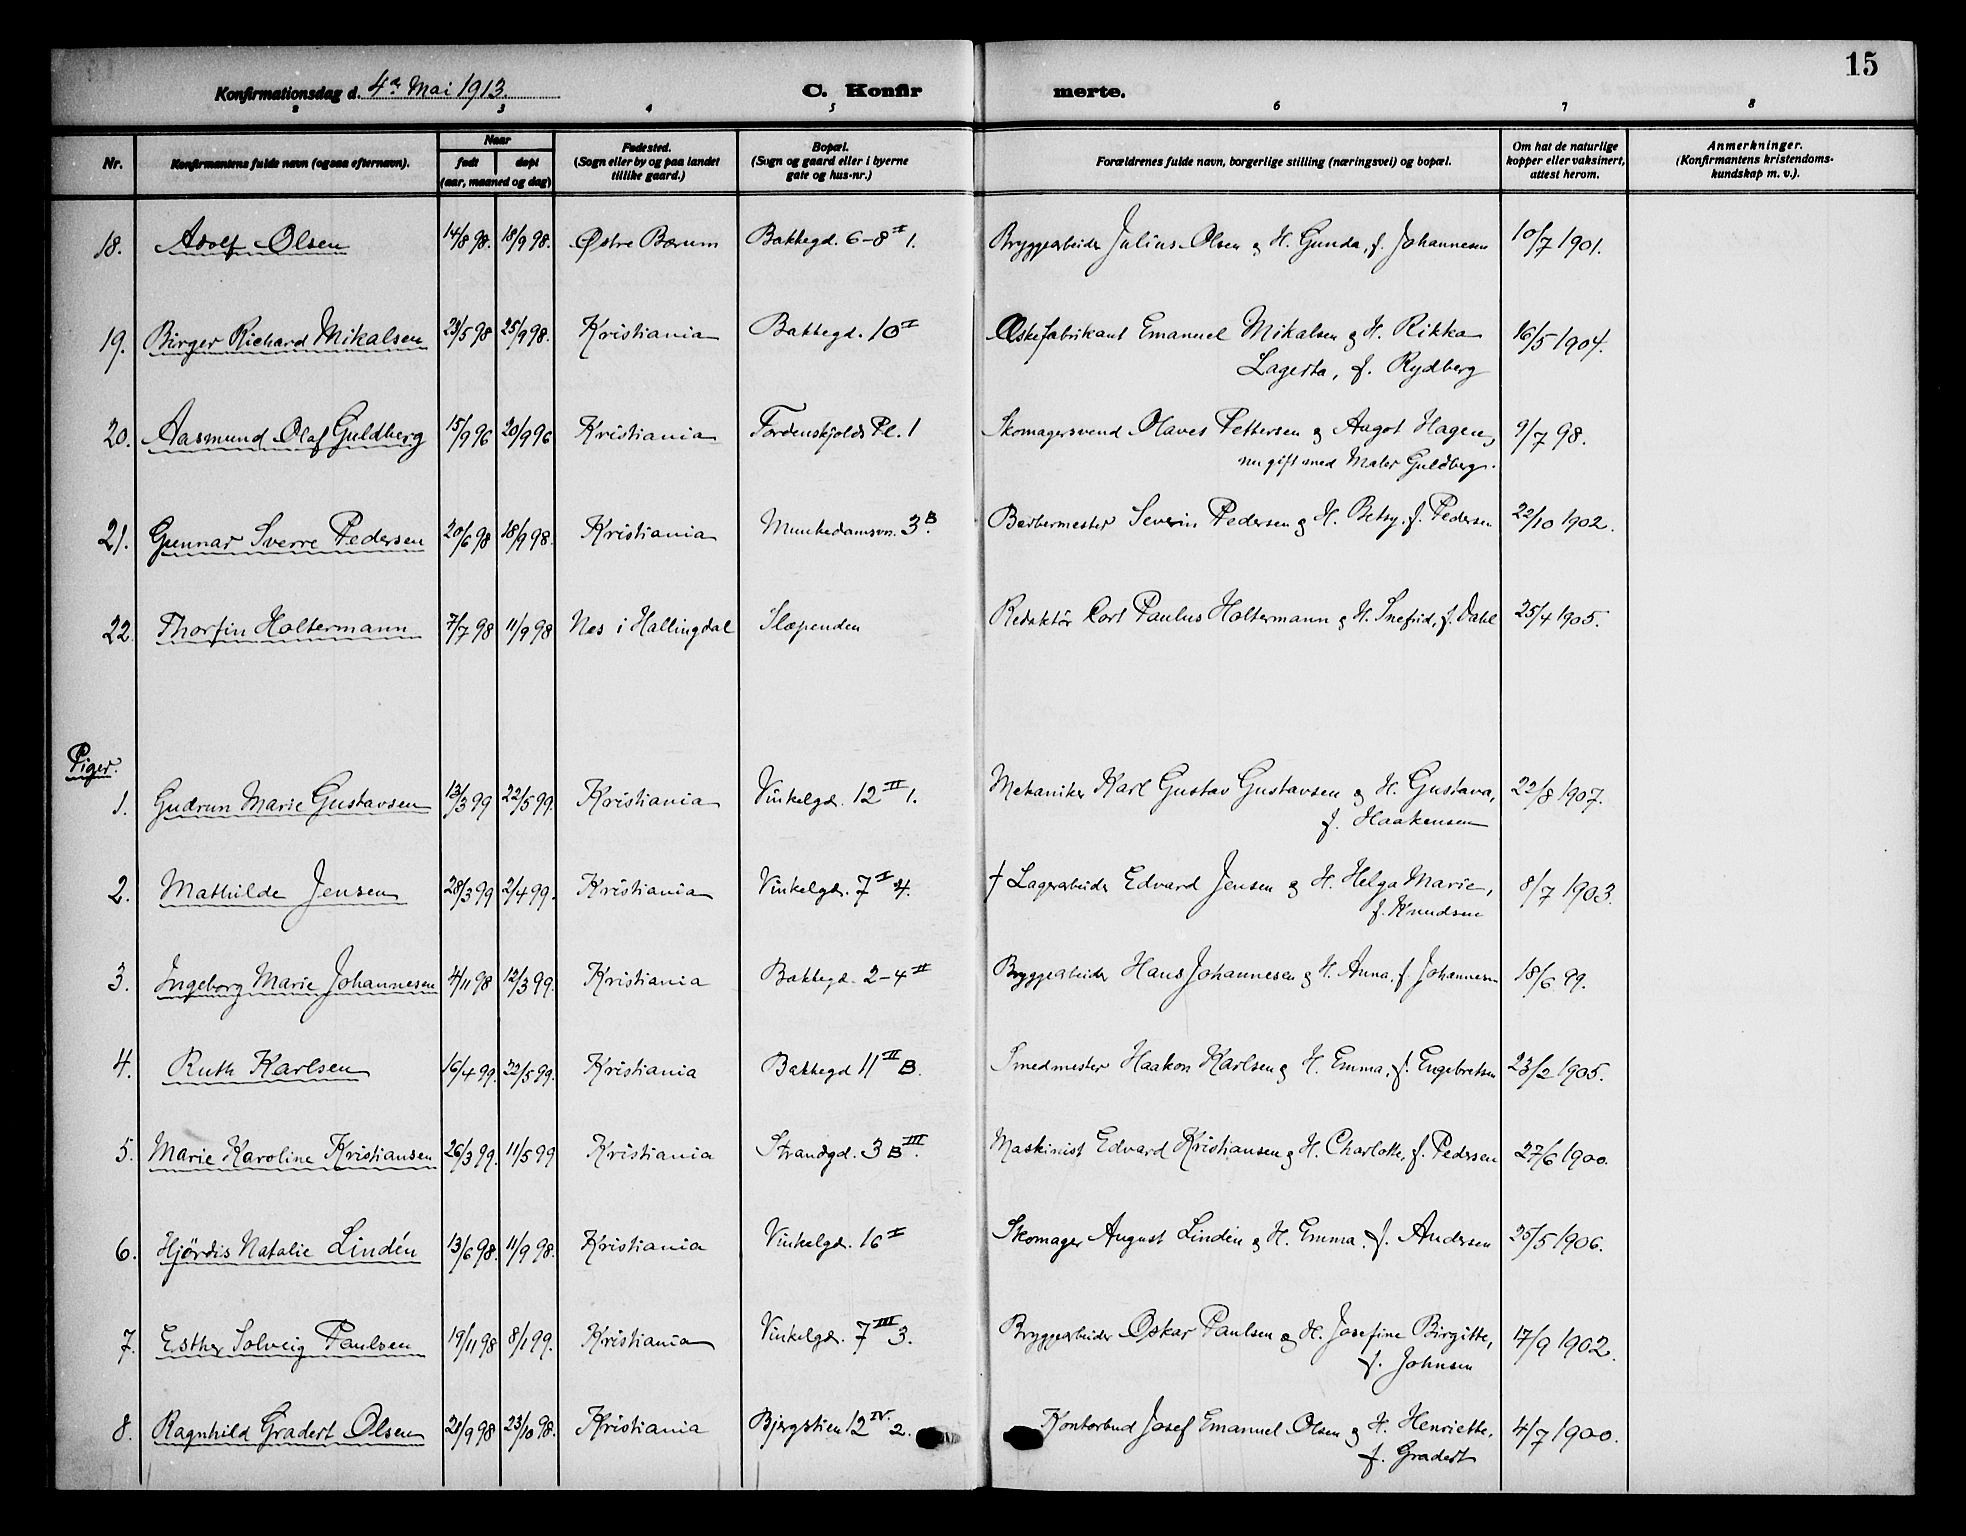 15
Konfirmationsdag d. 4de Mai 1913. C. Konfir merte.
2 3 4 5 6 7 8
Nr. Konfirmantens fulde navn (ogsaa efternavn). Naar født døpt (aar, maaned og dag) Fødested. (Sogn eller by og paa landet tillike gaard.) Bopæl. (Sogn og gaard eller i byerne gate og hus-nr.) Forældrenes fulde navn, borgerlige stilling (næringsvei) og bopæl. Om hat de naturlige kopper eller vaksinert, attest herom. Anmerkninger. (Konfirmantens kristendomskundskap m. v.).
18. Adolf Olsen 14/8 98. 18/9 98. Østre Bærum Bakkegd. 6-8 II 1. Bryggearbeider Julius Olsen & H. Gunda, f. Johannesen 10/7 1901.
19. Birger Richard Mikalsen 23/5 98 25/9 98. Kristiania Bakkegd. 10 I Æskefabrikant Emanuel Mikalsen & H. Rikka 16/5 1904.
Lagerta, f. Rydberg
20. Aasmund Olaf Guldberg 15/9 96 20/9 96 Kristiania Tordenskjolds Pl. 1 Skomagersvend Olaves Pettersen & Aagot Hagen, 9/7 98.
nu gift med Maler Guldberg.
21. Gunnar Sverre Pedersen 20/6 98 18/9 98. Kristiania Munkedamsvn. 3 B. Barbermester Severin Pedersen & H. Betsy, f. Pedersen 22/10 1902.
22. Thorfin Holtermann 7/7 98 11/9 98 Nes i Hallingdal Slæpenden Redaktør Cort Paulus Holtermann & H. Snefrid, f. Dahl 25/4 1905.
Piger.
1. Gudrun Marie Gustavsen 13/3 99 22/5 99. Kristiania Vinkelgd. 12 II 1. Mekaniker Karl Gustav Gustavsen & H. Gustava, 22/8 1907.
f. Haakensen
2. Mathilde Jensen 28/3 99 2/4 99. Kristiania Vinkelgd. 7 I 4. † Lagerarbeider Edvard Jensen & H. Helga Marie, 8/7 1903.
f. Knudsen
3. Ingeborg Marie Johannesen 4/11 98 12/3 99. Kristiania Bakkegd. 2-4 II Bryggearbeider Hans Johannesen & H. Anna, f. Johannesen 18/6 99.
4. Ruth Karlsen 16/4 99. 22/5 99. Kristiania Bakkegd 11 II B. Smedmester Haakon Karlsen & H. Emma, f. Engebretsen 23/2 1905.
5. Marie Karoline Kristiansen 26/3 99. 11/5 99 Kristiania Strandgd. 3 B III. Maskinist Edvard Kristiansen & H. Charlotte, f. Pedersen 27/6 1900.
6. Hjördis Natalie Lindén 13/6 98. 11/9 98. Kristiania Vinkelgd. 16 I Skomager August Lindén & H. Emma, f. Andersen 25/5 1906.
7. Esther Solveig Paulsen 19/11 98 8/1 99. Kristiania Vinkelgd. 7 III 3. Bryggearbeider Oskar Paulsen & H. Josefine Birgitte, 17/9 1902.
f. Johnsen
8. Ragnhild Gradert Olsen 21/9 98 23/10 98. Kristiania Bjergstien 12 IV. 2. Kontorbud Josef Emanuel Olsen & H. Henriette, 4/7 1900.
f. Gradert